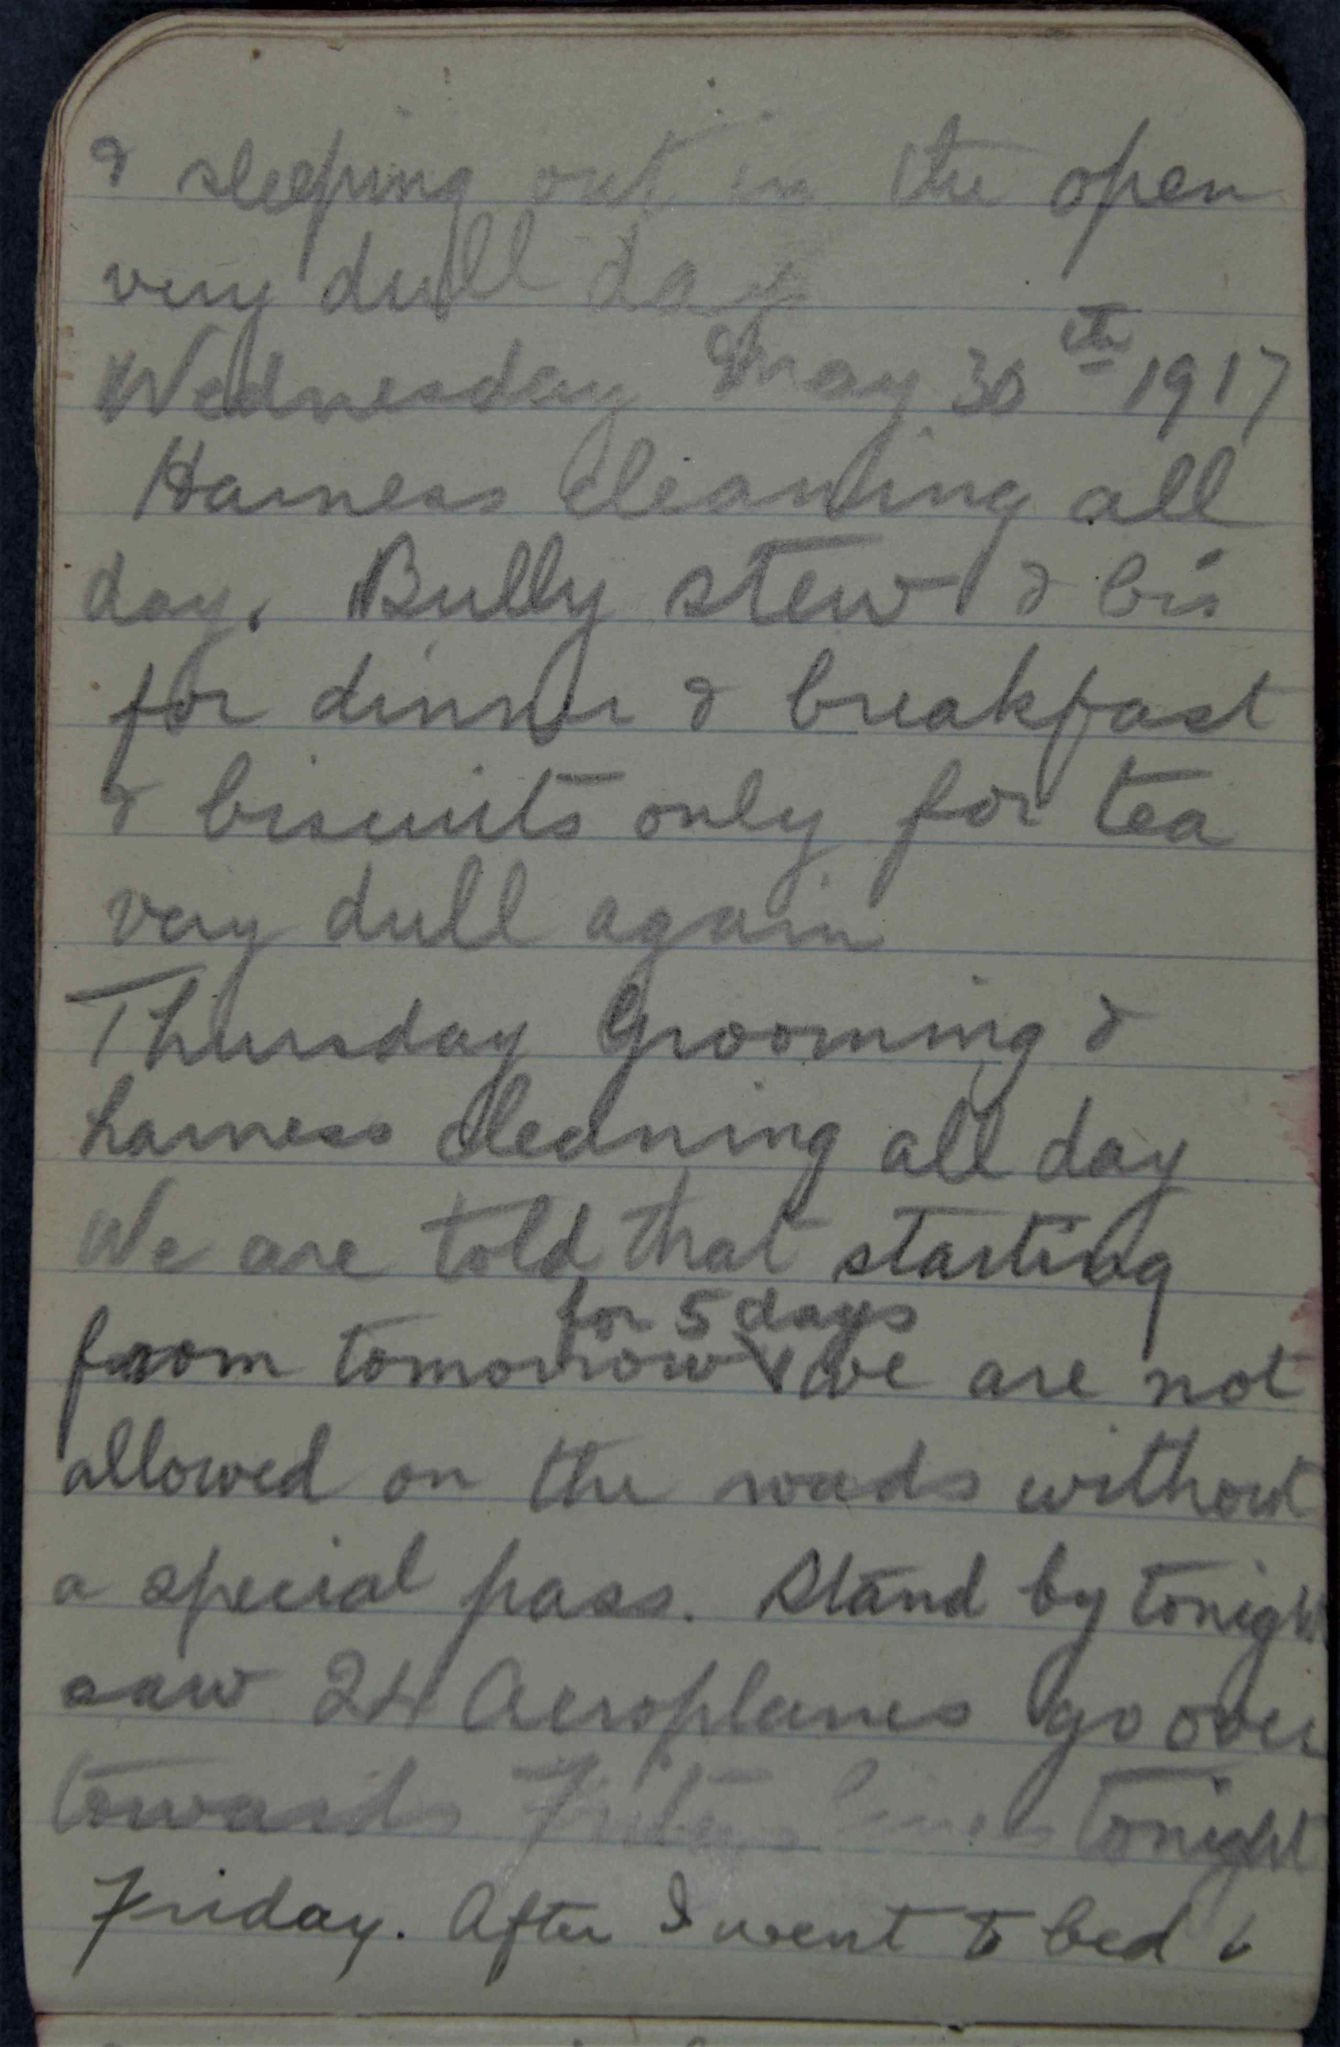 & sleeping out in the open
very dull day
Wednesday May 30th 1917
Harness cleaning all
day. Bully stew & bis
for dinner & breakfast
& biscuits only for tea
very dull again
Thursday Grooming &
harness cleaning all day
We are told that starting
for 5 days
from tomorrow we are not
allowed on the roads without
a special pass. Stand by tonight
saw 24 Aeroplanes go over
towards Fritz's lines tonight
Friday. After I went to bed